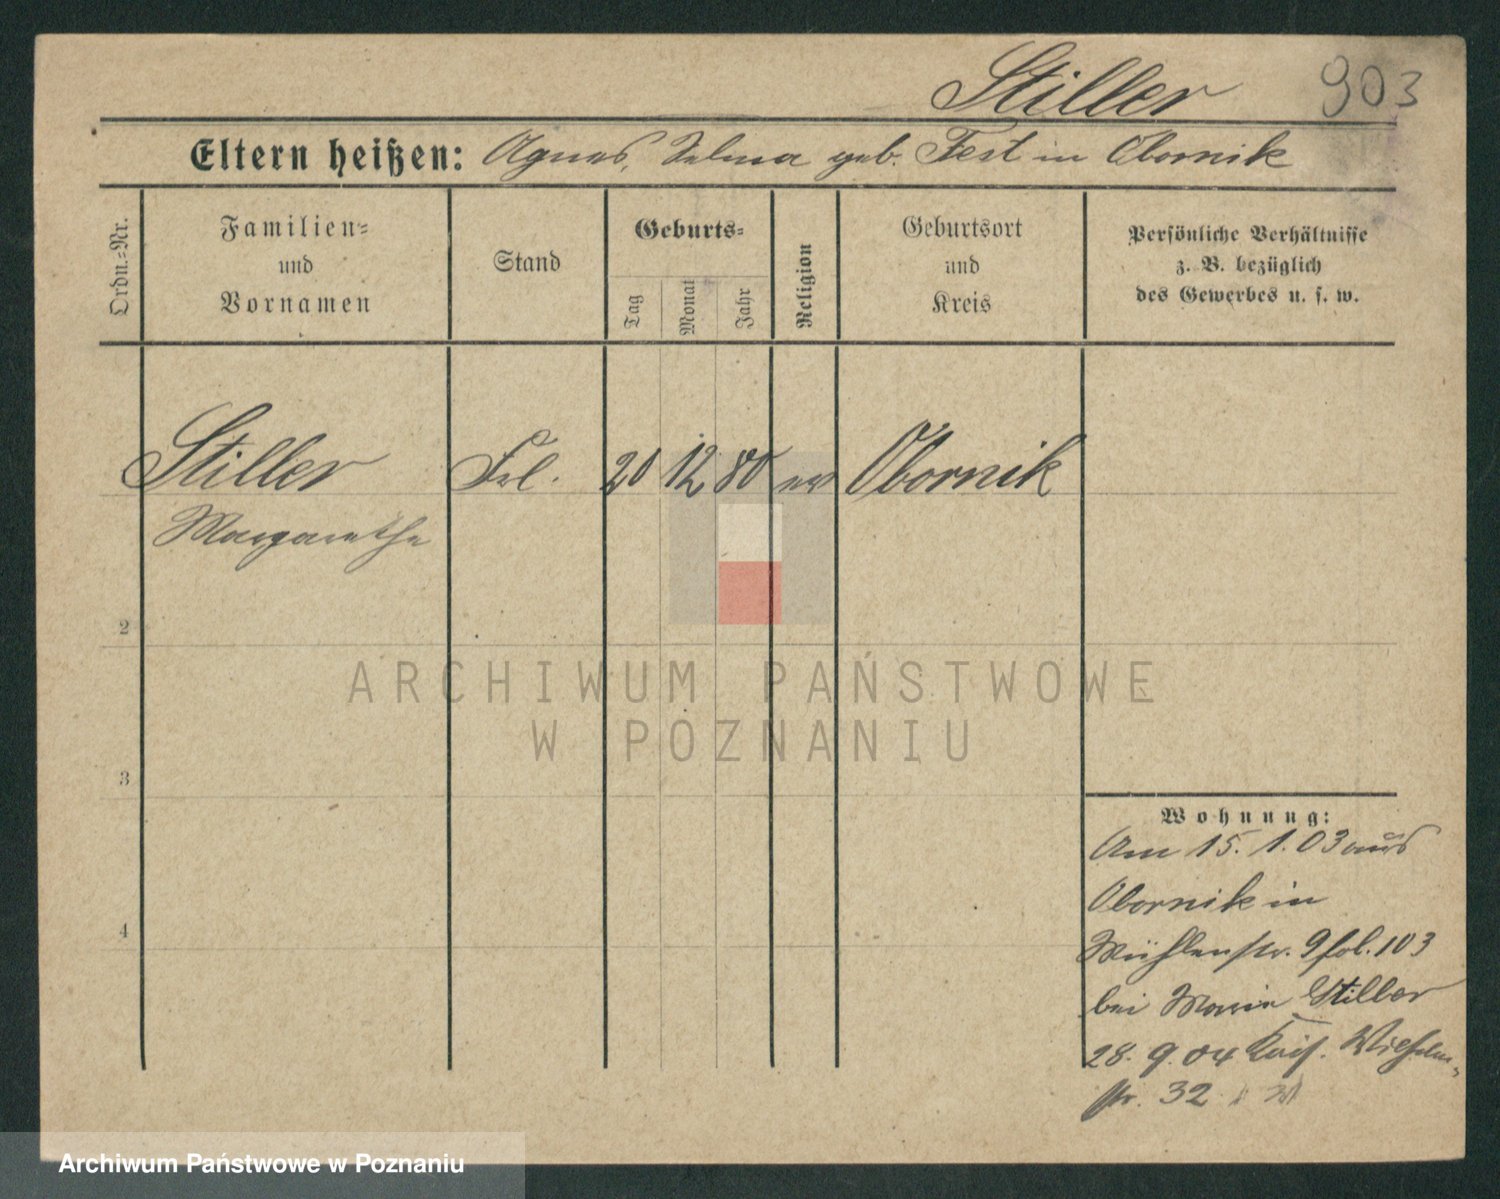 Stiller 903
Eltern heißen: Agnes, Selma geb. Fest in Obornik
Ordn.=Nr.
Familien=
und
Vornamen
Stand
Geburts=
Tag
Monat
Jahr
Religion
Geburtsort
und
Kreis
Persönliche Verhältnisse
z. B. bezüglich
des Gewerbes u. s. w.
Stiller Frl. 20 12 80 ev Obornik
Margarethe
2
3
4
ARCHIWUM PAŃSTWOWE
W POZNANIU
Wohnung:
Am 15. 1. 03 aus
Obornik in
Mühlenstr. 9 fol. 103
bei Marie Stiller
28. 9. 04 Kais. Wilhelm-
str. 32
Archiwum Państwowe w Poznaniu